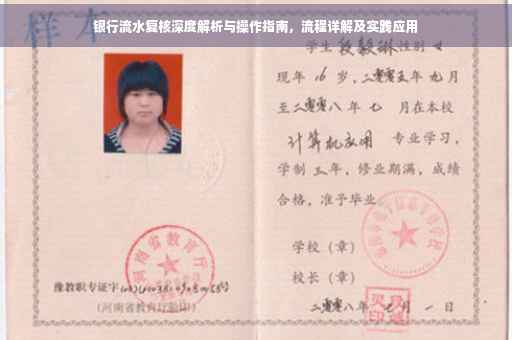 银行流水复核深度解析与操作指南，流程详解及实践应用
样本
学生段毅琳性别女
现年16岁，二零零五年九月
至二零零八年七月在本校
计算机应用 专业学习，
学制三年，修业期满，成绩
合格，准予毕业。
学校（章）
校长（章）
二零零八年七月一日
河南省教育厅
豫教职专证字
（河南省教育厅验印）